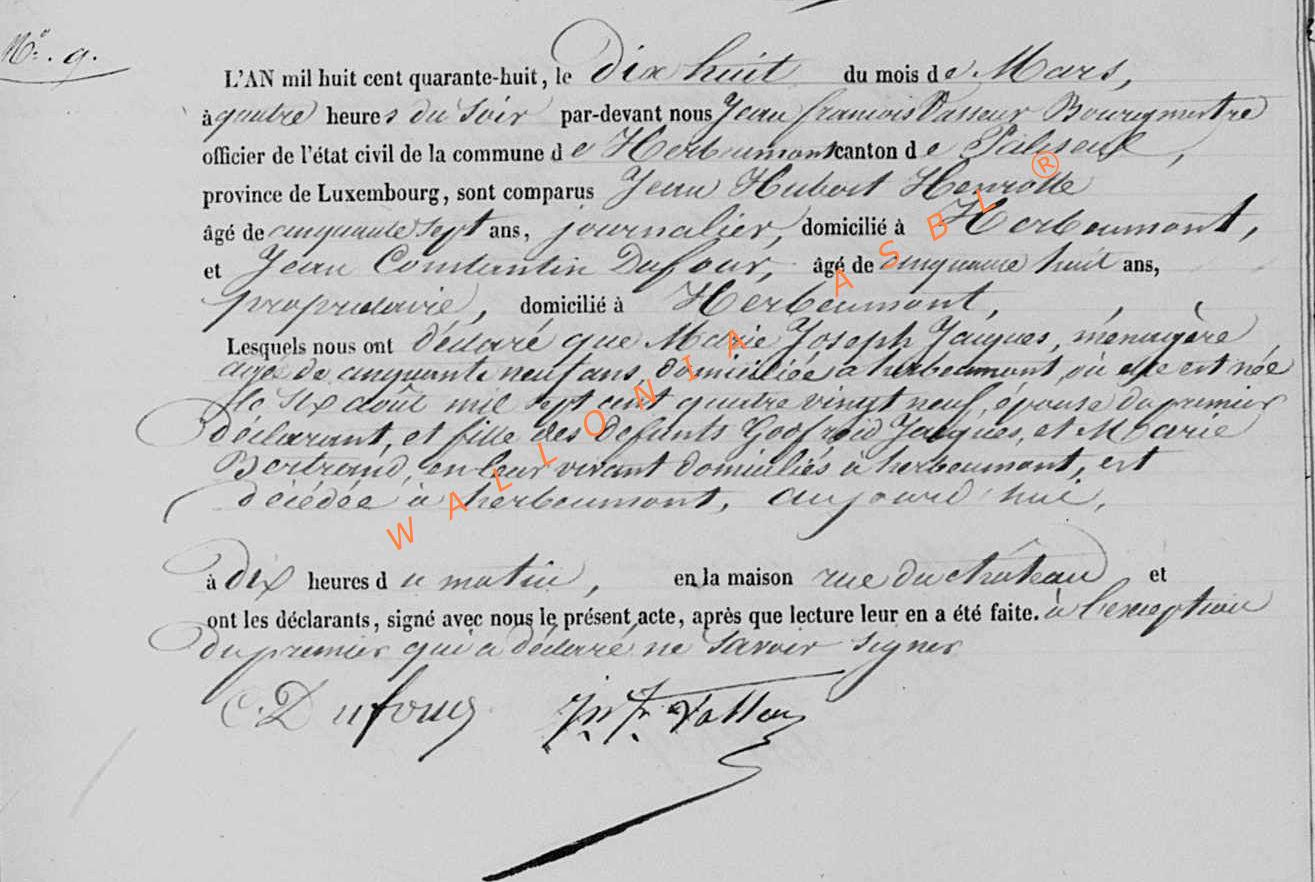 N.o 9.
L'AN mil huit cent quarante-huit, le dix huit du mois de Mars,
à quatre heures du soir par-devant nous Jean francois Vasseur Bourgmestre
officier de l'état civil de la commune de Herbeumont canton de Paliseul,
province de Luxembourg, sont comparus Jean Hubert Henrotte
âgé de cinquante sept ans, journalier, domicilié à Herbeumont,
et Jean Constantin Dufour, âgé de cinquante huit ans,
propriétaire, domicilié à Herbeumont,
Lesquels nous ont déclaré que Marie Joseph Jacques, ménagère
agée de cinquante neuf ans, domiciliée à herbeumont, où elle est née
le six août mil sept cent quatre vingt neuf, épouse du premier
déclarant, et fille des defunts Godfroid Jacques, et Marie
Bertrand, en leur vivant domiciliés à herbeumont, est
décédée à herbeumont, aujourd'hui,
à dix heures du matin, en la maison rue du château et
ont les déclarants, signé avec nous le présent acte, après que lecture leur en a été faite. à l'exception
du premier qui a déclaré ne savoir signer
C. Dufour J. F. Vasseur
WALLONIA ASBL ®